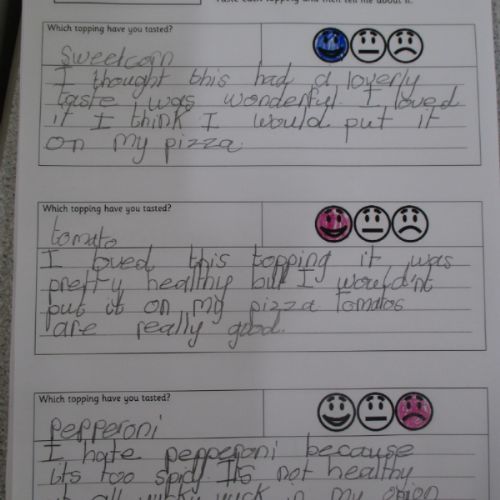 Taste each topping and then tell me about it.
Which topping have you tasted?
Sweetcorn
I thought this had a loverly
taste i was wonderful I loved
it I think I would put it
on my pizza.
Which topping have you tasted?
tomato
I loved this topping it was
pretty healthy but I would'nt
put it on my pizza tomatos
are really good.
Which topping have you tasted?
pepperoni
I hate pepperoni because
its too spicy. It's not healthy
it all yucky yuck in my opion